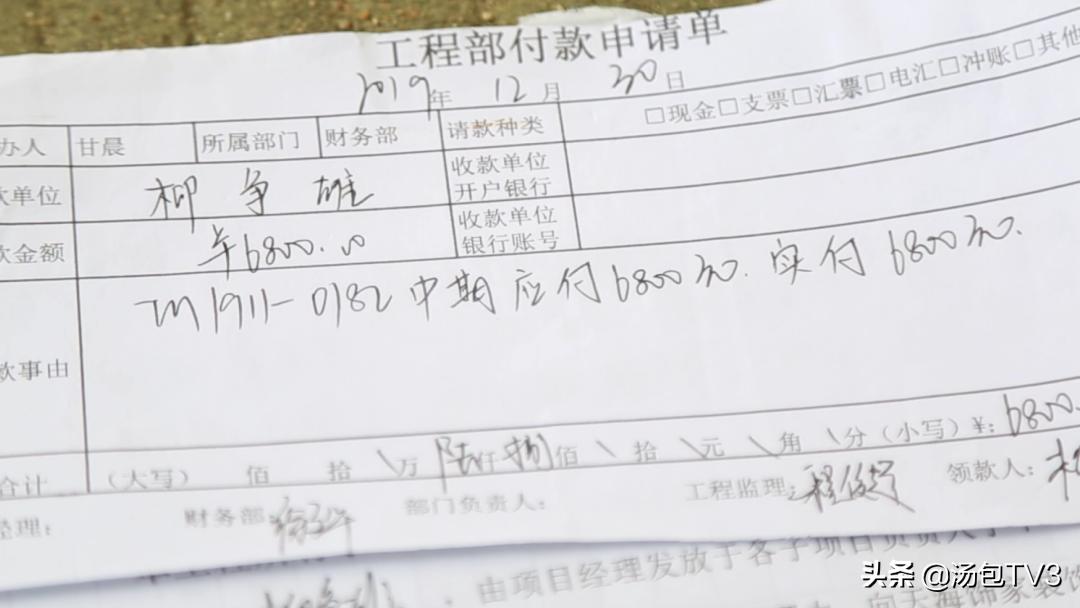 工程部付款申请单
2019年 12月 30日
办人 甘晨 所属部门 财务部 请款种类 □现金□支票□汇票□电汇□冲账□其他
款单位 柳争雄 收款单位开户银行
款金额 ¥6800.00 收款单位银行账号
款事由 TM1911-0182 中期应付6800元. 实付6800元.
合计 (大写) 佰 拾 \万 陆仟 捌佰 \拾 \元 \角 \分 (小写) ¥: 6800.
经理: 财务部 部门负责人: 工程监理: 领款人:
由项目经理发放于各子项目负责人
头条 @汤包TV3